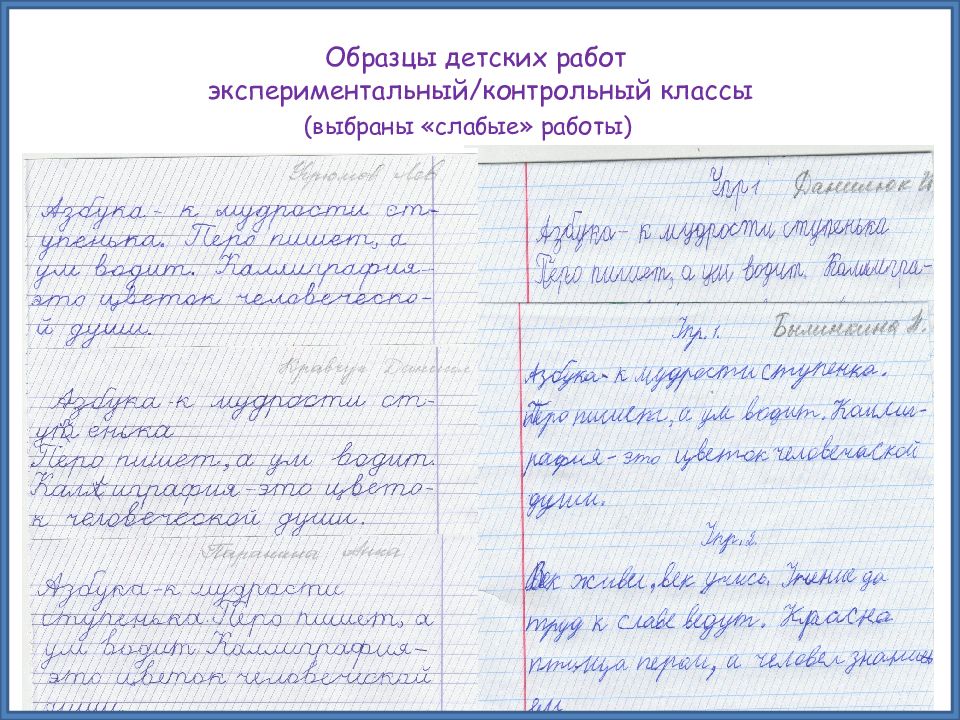 Образцы детских работ
экспериментальный/контрольный классы
(выбраны «слабые» работы)
Азбука - к мудрости ст-
упенька. Перо пишет, а
ум водит. Каллиграфия -
это цветок человеческо-
й души.
Кравчук Даниил
Азбука - к мудрости ст-
упенька
Перо пишет, а ум водит.
Каллиграфия - это цвето-
к человеческой души.
Паранина Анна
Азбука - к мудрости
ступенька. Перо пишет, а
ум водит Каллиграфия -
это цветок человеческой
души.
Упр 1 Данилюк И
Азбука - к мудрости ступенька
Перо пишет, а ум водит. Каллигра-
Упр. 1. Былинкина Н.
Азбука - к мудрости ступенка.
Перо пишет, а ум водит. Каллиг-
рафия - это цветок человечаской
души.
Упр. 2.
Век живи, век учись. Учение да
труд к славе ведут. Красна
птица пером, а человек знани
ем